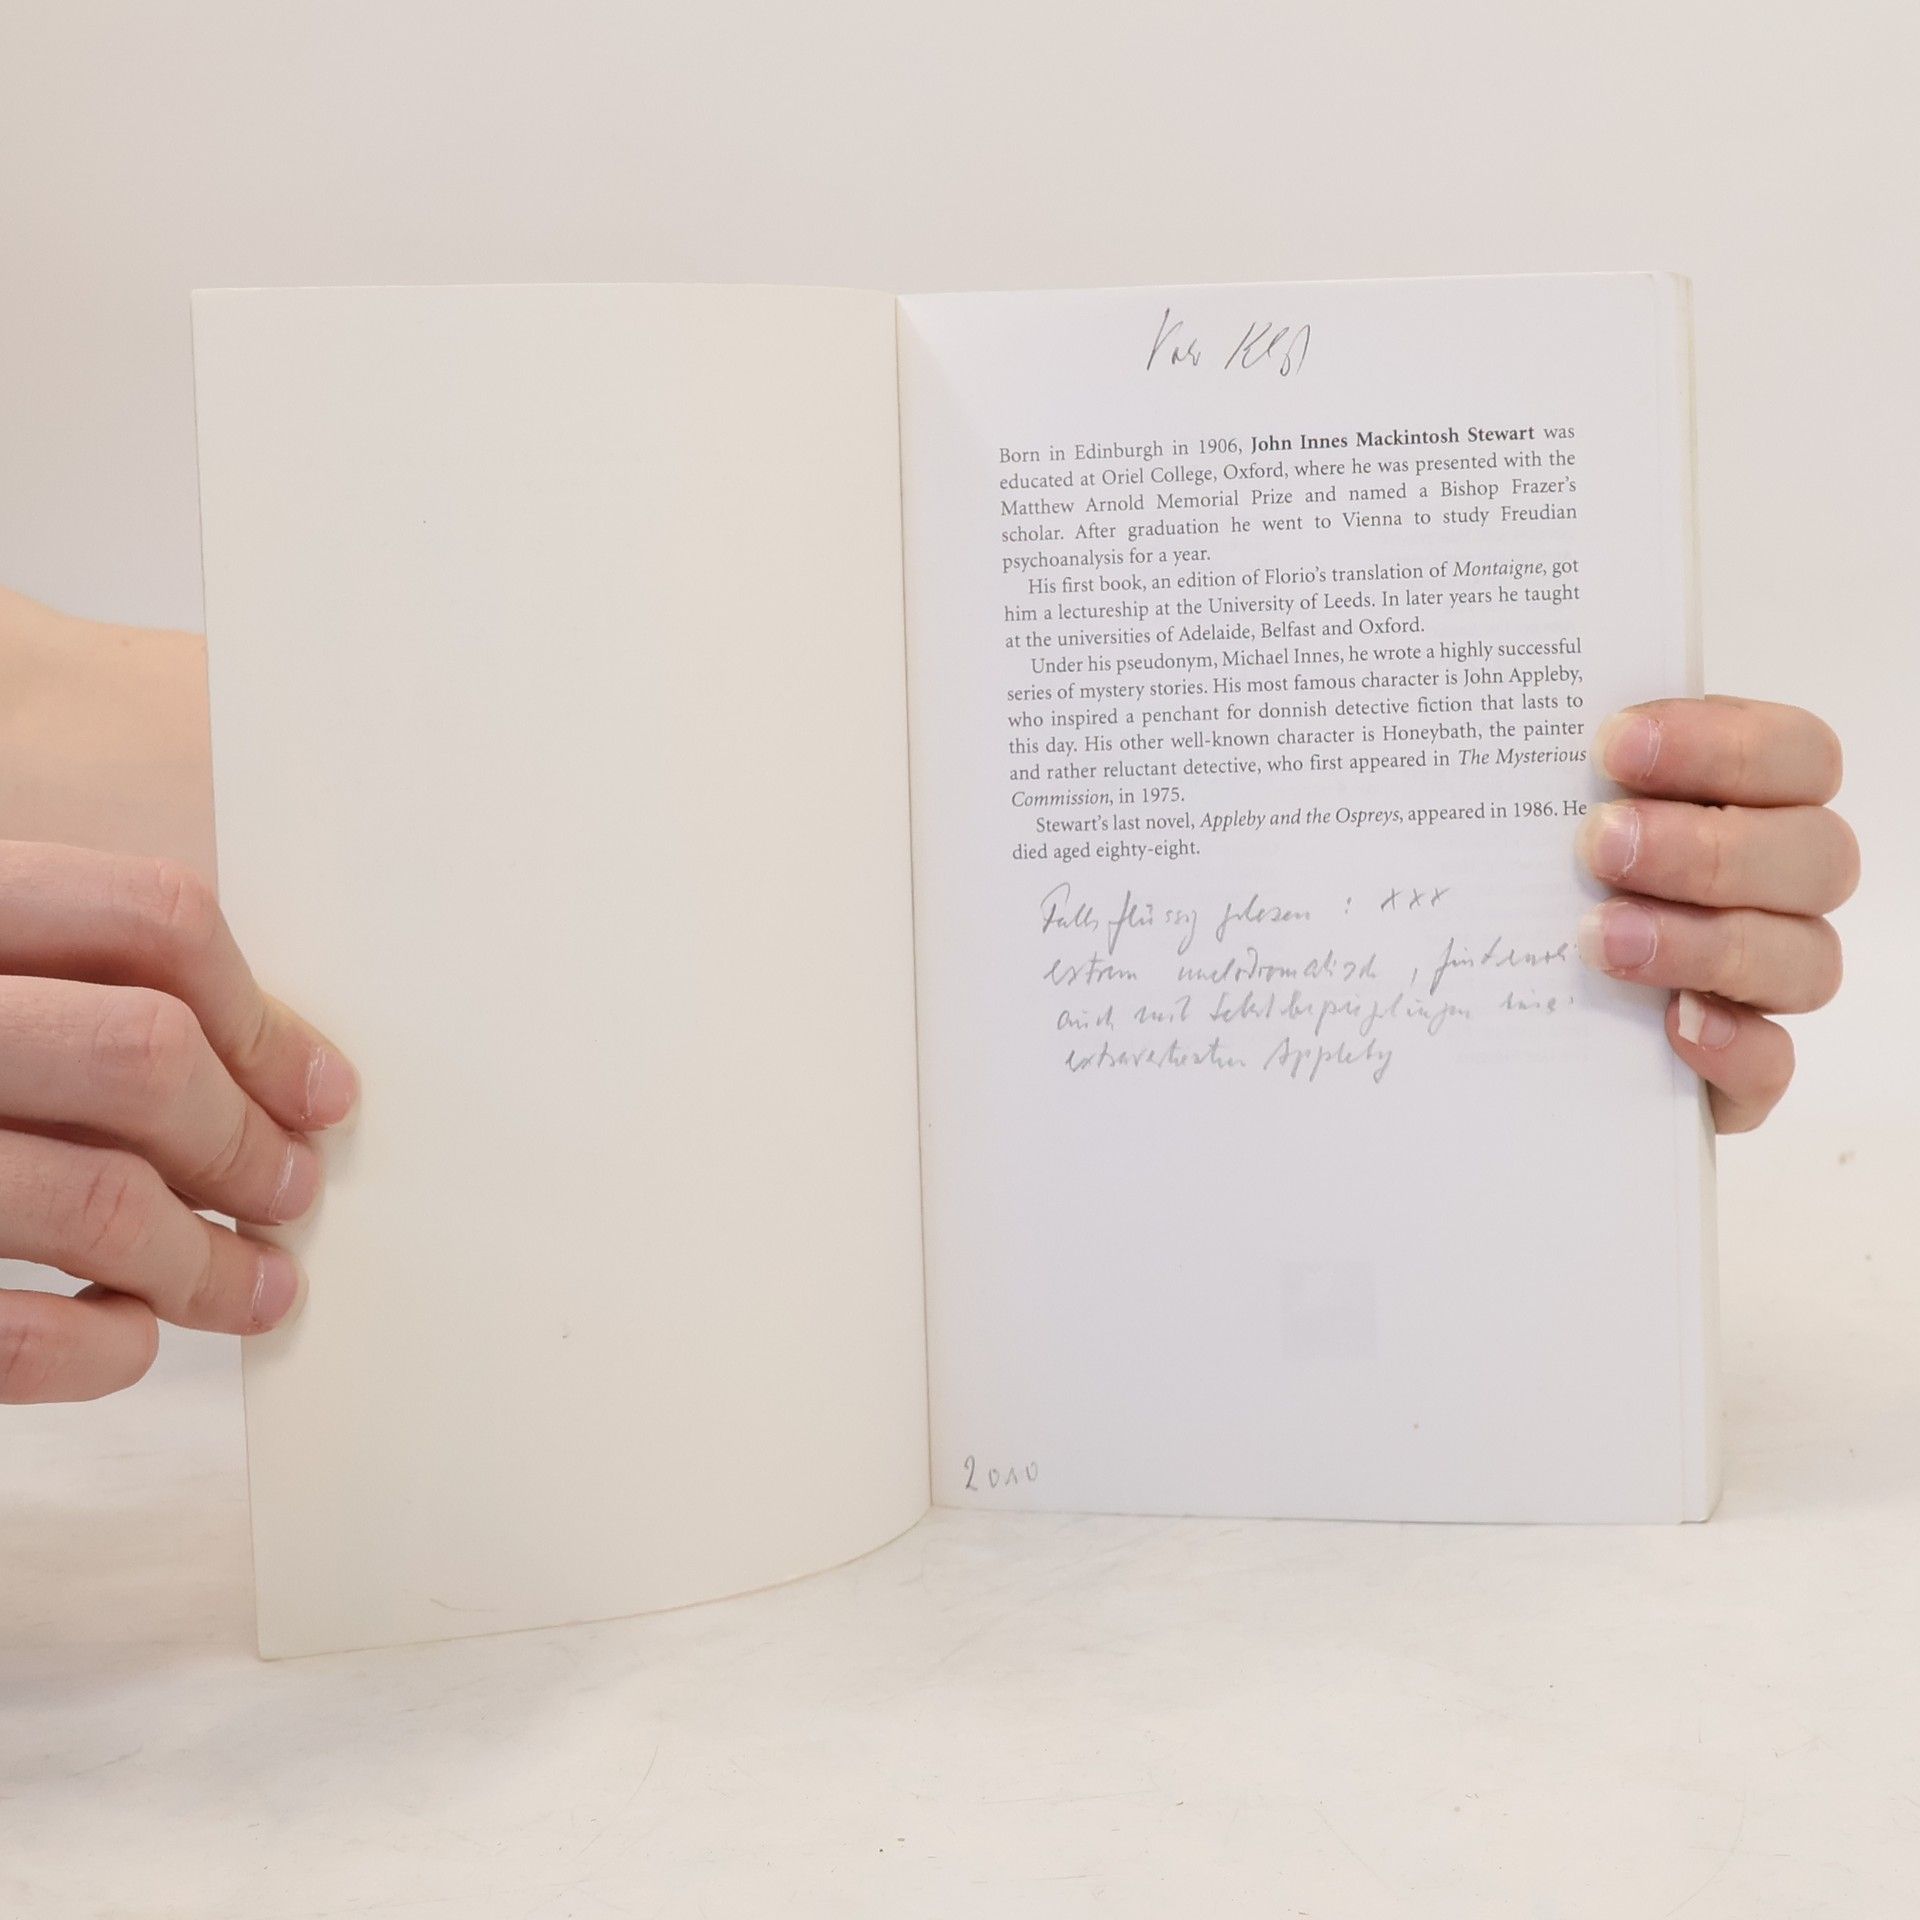 Born in Edinburgh in 1906, John Innes Mackintosh Stewart was
educated at Oriel College, Oxford, where he was presented with the
Matthew Arnold Memorial Prize and named a Bishop Frazer's
scholar. After graduation he went to Vienna to study Freudian
psychoanalysis for a year.
His first book, an edition of Florio's translation of Montaigne, got
him a lectureship at the University of Leeds. In later years he taught
at the universities of Adelaide, Belfast and Oxford.
Under his pseudonym, Michael Innes, he wrote a highly successful
series of mystery stories. His most famous character is John Appleby,
who inspired a penchant for donnish detective fiction that lasts to
this day. His other well-known character is Honeybath, the painter
and rather reluctant detective, who first appeared in The Mysterious
Commission, in 1975.
Stewart's last novel, Appleby and the Ospreys, appeared in 1986. He
died aged eighty-eight.
Falls flüssig gelesen : xxx
extrem melodromatisch ,
auch mit
Appleby
2010